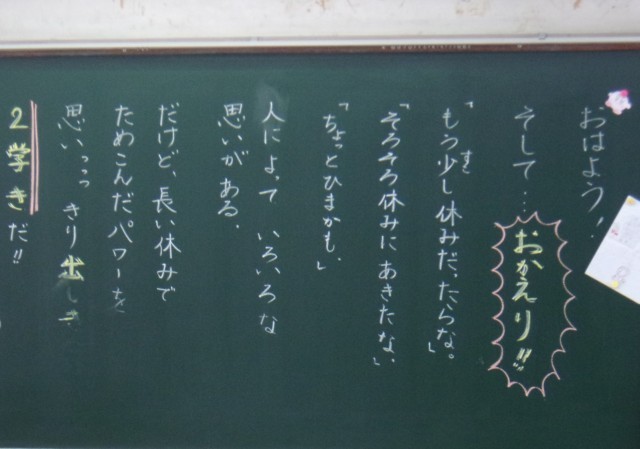 おはよう！
そして…おかえり!!
「もう少し休みだったらな。」
「そろそろ休みにあきたな、」
「ちょっとひまかも、」
人によって いろいろな
思いがある.
だけど、長い休みで
ためこんだパワーを
思いっっっきり出しき
2学きだ!!